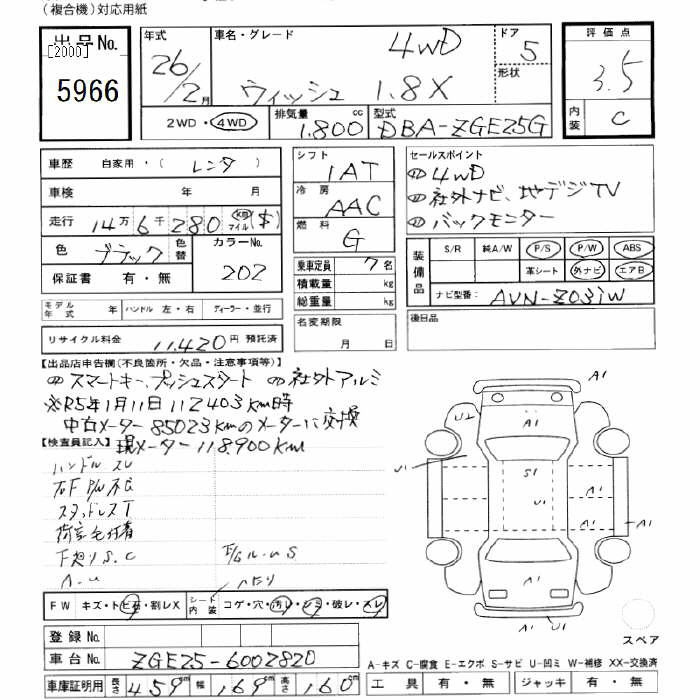 (複合機)対応用紙
出品No. [2000] 5966
年式 26/2月
車名・グレード 4WD ウィッシュ 1.8X
ドア 5
形状
評価点 3.5
内装 C
2WD・4WD
排気量 1.800 cc
型式 DBA-ZGE25G
車歴 自家用・(レンタ)
車検 年 月
走行 14万6千280 km マイル ($)
色 ブラック 色替 カラーNo. 202
保証書 有・無
モデル年式 年 ハンドル 左・右 ディーラー・並行
リサイクル料金 11,420円 預託済
シフト 1AT
冷房 AAC
燃料 G
乗車定員 7名
積載量 kg
総重量 kg
名変期限 月 日
セールスポイント
4WD
社外ナビ、地デジTV
バックモニター
装備品 S/R 純A/W P/S P/W ABS
革シート 外ナビ エアB
ナビ型番: AVN-Z03iW
後日品
【出品店申告欄(不良箇所・欠品・注意事項等)】
スマートキー、プッシュスタート 社外アルミ
※R5年1月11日 112403km時
中古メーター85023kmのメーターに交換
現メーター118.900km
【検査員記入】
ハンドルスレ
右F P/W不良
スタッドレスT
F廻りS.C
FW キズ・トビ石・割レX シート内装 コゲ・穴・汚レ・シミ・破レ・スレ
登録No.
車台No. ZGE25-6002820
車庫証明用 長さ 459cm 幅 169cm 高さ 160cm
A1
U2
A1
U1
S1
A1
U1
A1
A1
A1
A1
スペア
A-キズ C-腐食 E-エクボ S-サビ U-凹ミ W-補修 XX-交換済
工具 有・無 ジャッキ 有・無